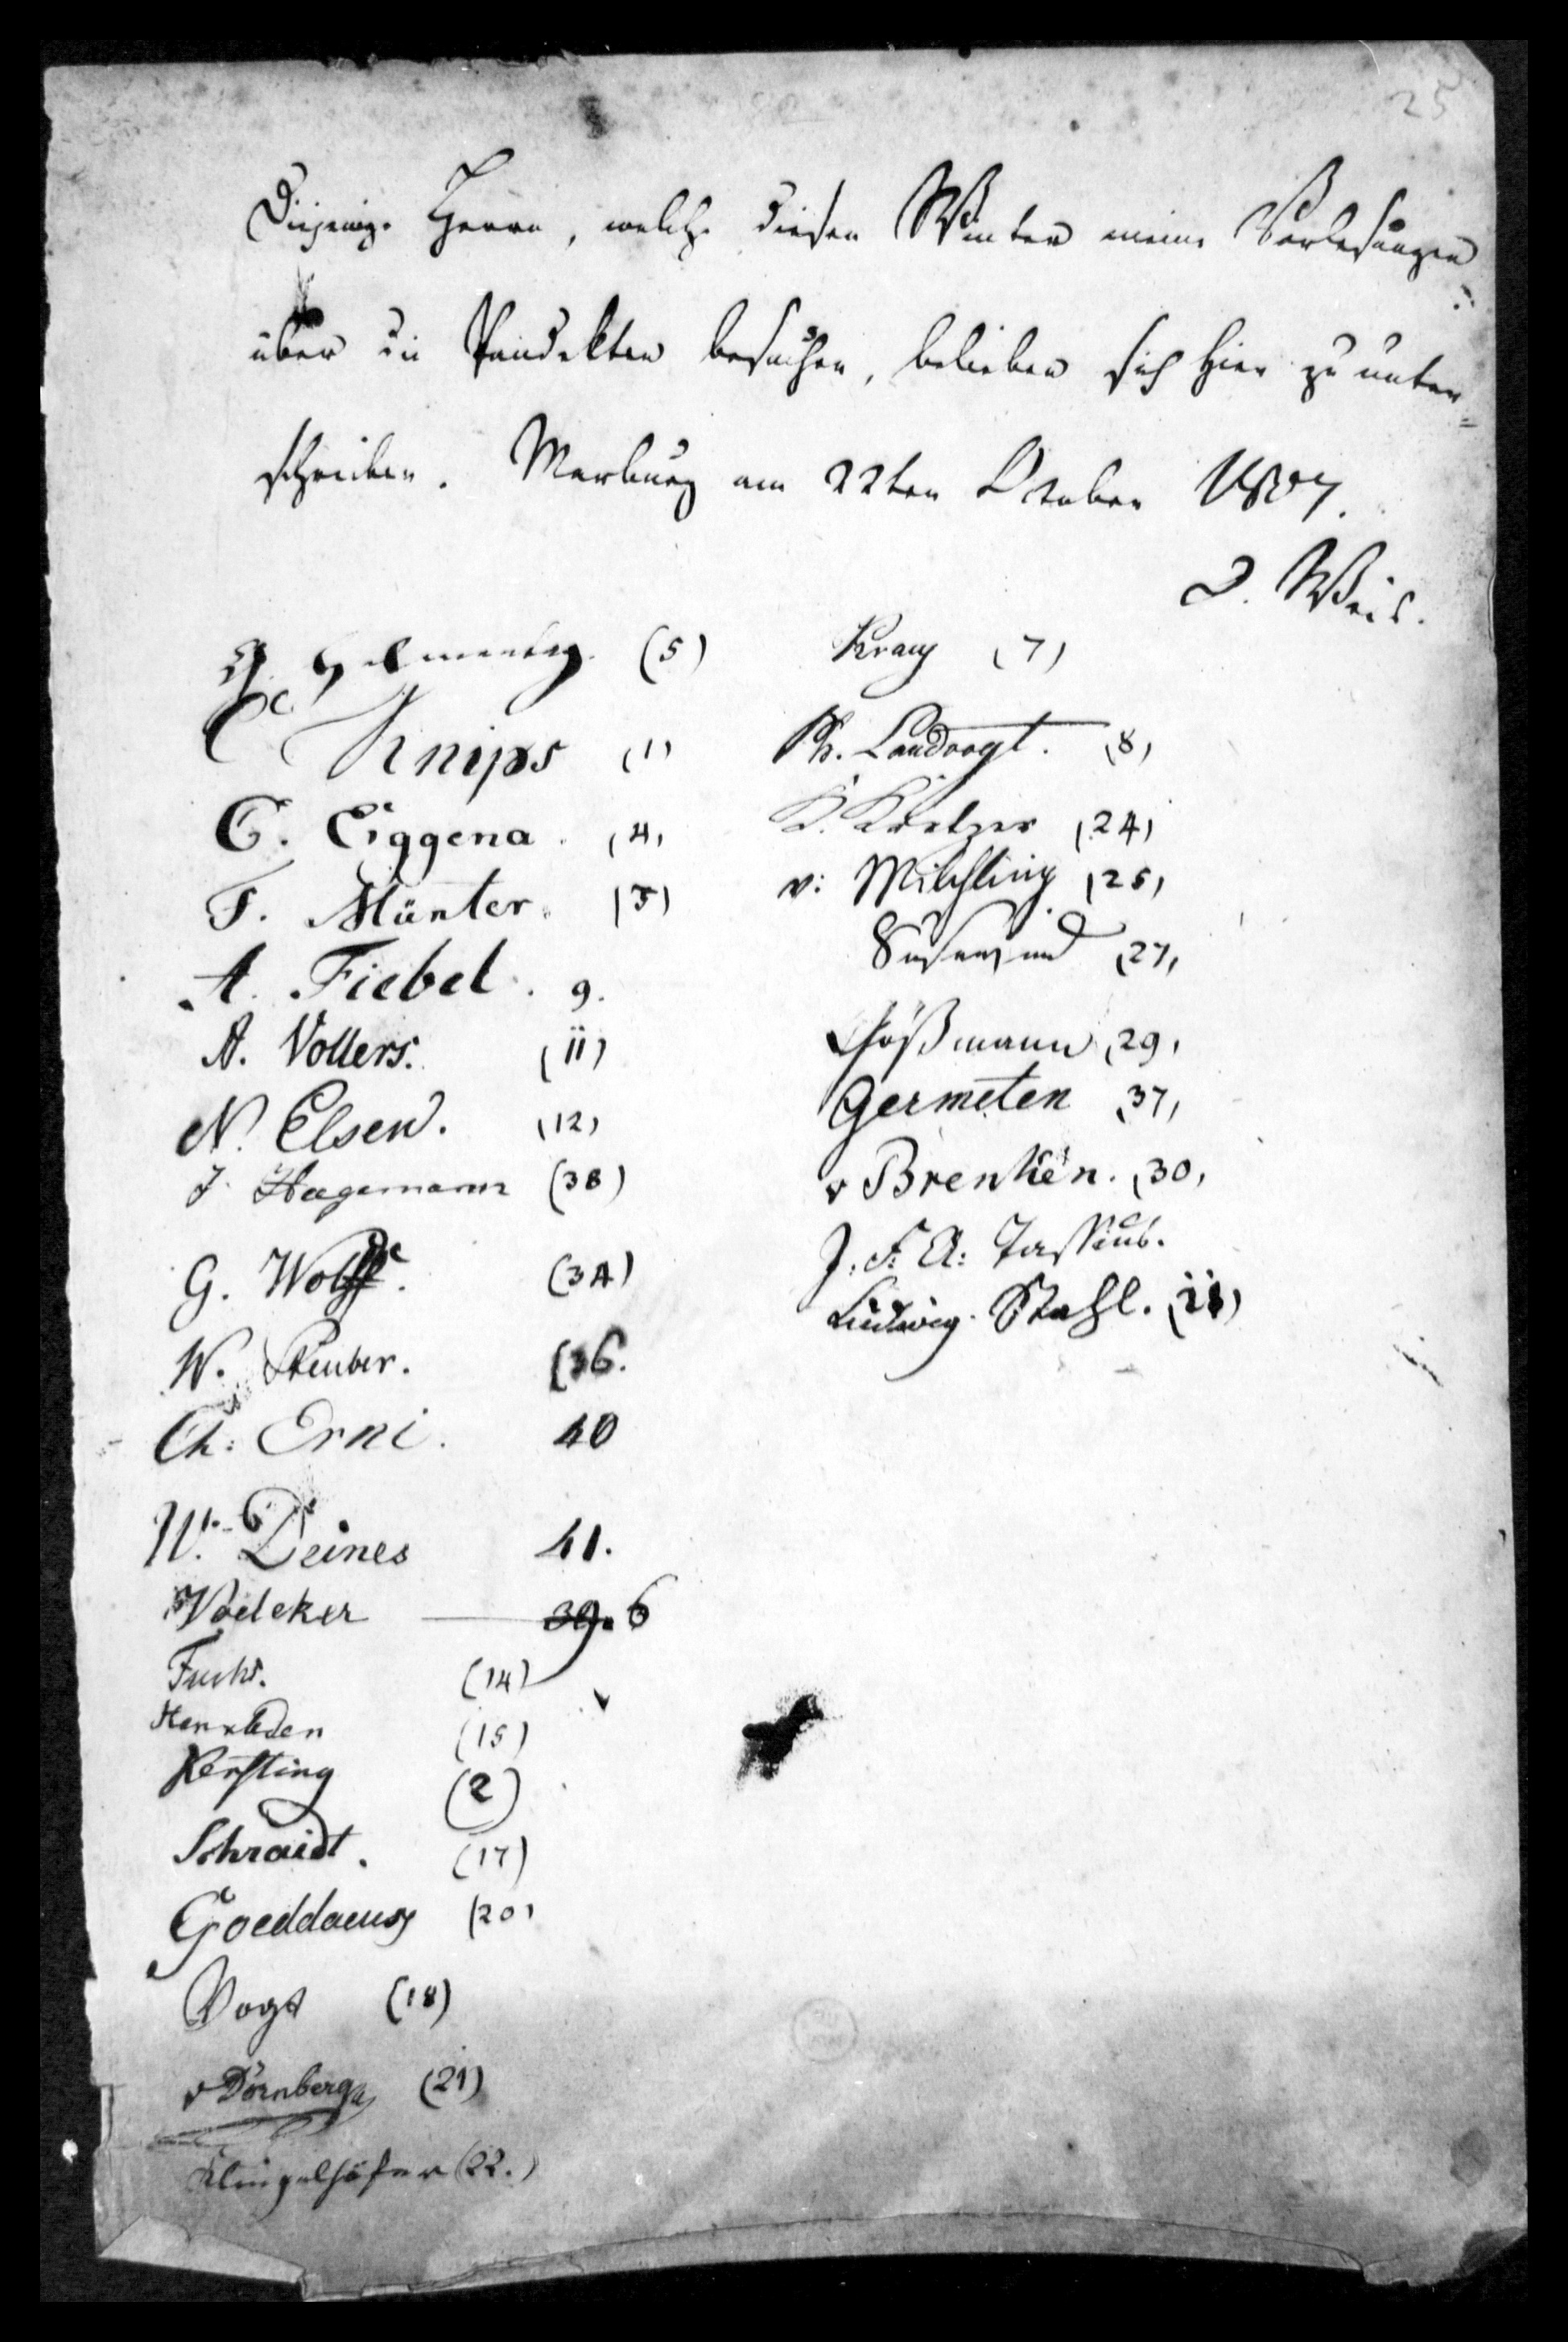 25
Diejenige Herrn, welche diesen Winter meine Vorlesungen
über die Pandekten besuchen, belieben sich hier zu unter=
schreiben. Marburg am 22ten October 1807.
D. Weis.
(5)
C Knips (1)
E. Eiggena. (4)
F. Münter. (3)
A. Fiebel. 9.
A. Vollers. (11)
N. Elsen. (12)
J. Hagemann (38)
G. Wolff. (34)
W. (36.
Ch: Erni. 40
W. Deines 41.
Voelcker 39. 6
Fuchs. (14)
Henxleden (15)
Kersting (2)
Schraidt. (17)
Goeddaeus (20)
Vogt (18)
v Dörnberg (21)
Klingelhöfer (22.)
Kranz (7)
Ph. Landvogt. (8)
K. Kratzer (24)
v: Milchling (25)
(27)
29)
Germeten 37)
v Brenken. (30)
J. F. A:
Ludwig Stahl.